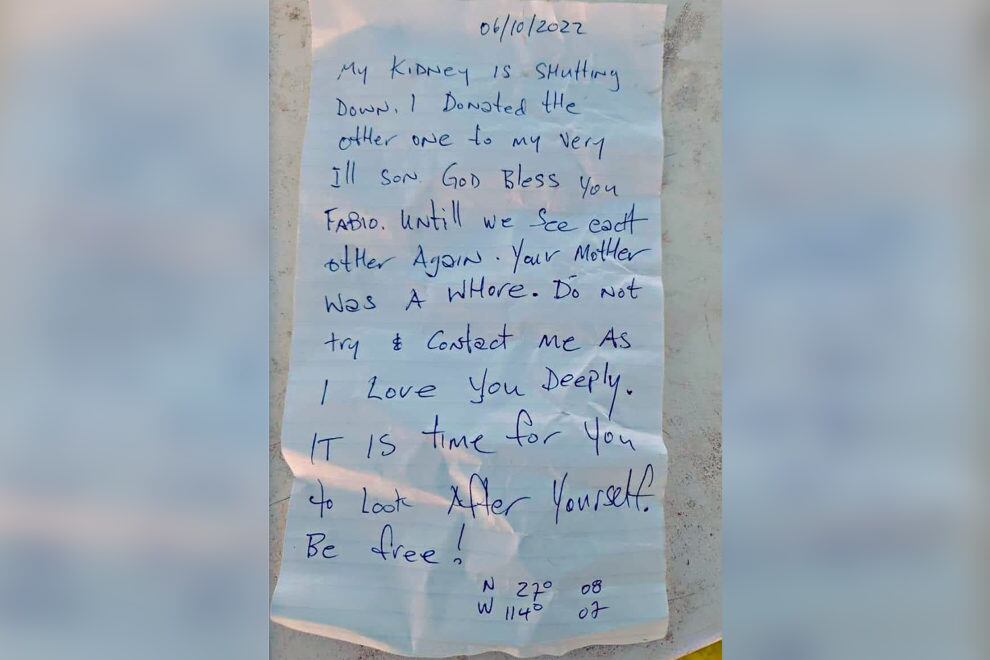 06/10/2022
My KIDNEY IS SHUttiNg
DOWN. I DoNated tHe
otHer oNe to my Very
Ill SoN. GOD Bless You
FABIO. UNtill we See eacH
otHer AgaiN. Your MotHer
Was A WHore. Do Not
try & Contact Me As
I Love You Deeply.
IT IS time for You
to Look After Yourself.
Be free!
N 27° 08
W 114° 07